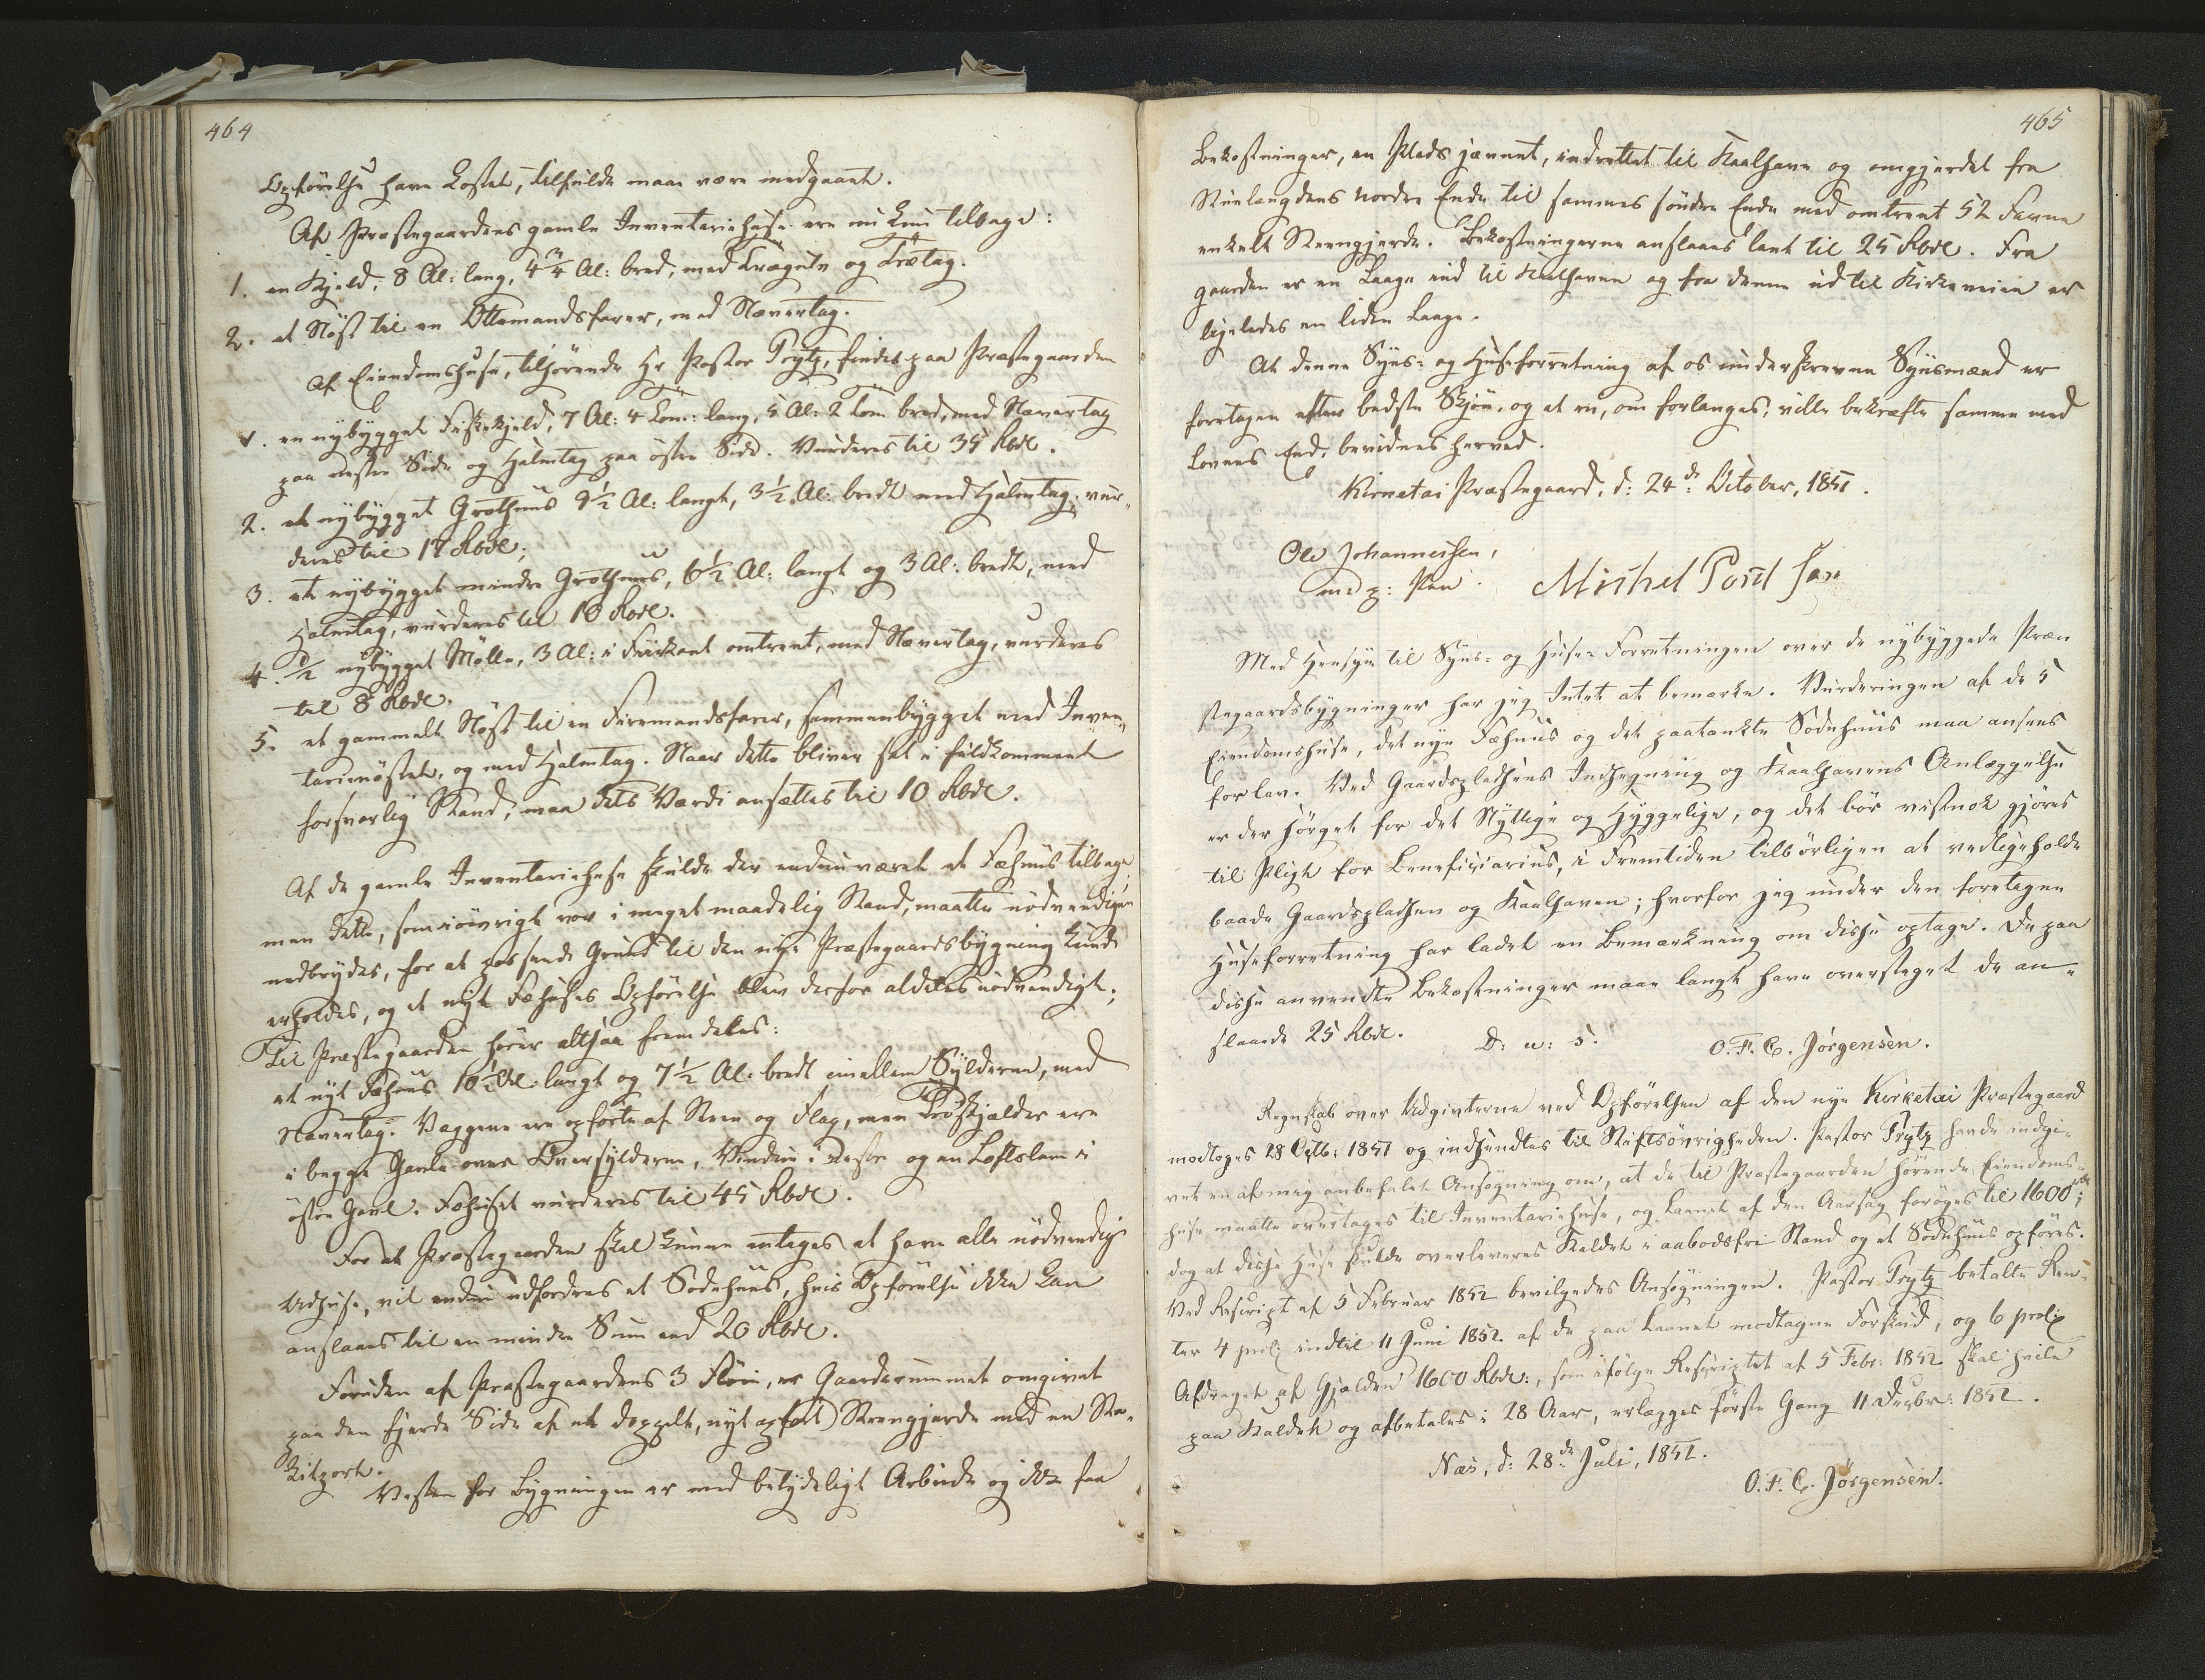 464
Opførelse have kostet, tilfulde maae være medgaaet.
Af Præstegaardens gamle Inventariehuse ere nu kun tilbage:
1. en Hjeld, 8 Al: lang, 4 3/4 Al: bred, med Trægulv og Trætag.
2. et Nöst til en Ottemandsfarer, med Nævertag.
Af Eiendomshuse, tilhørende Hr Pastor Tryty, findes paa Præstegaarden
1. en nybygget Fiskehjeld, 7 Al: 4 Tom: lang, 5 Al: 2 Tom bred, med Nævertag
paa vestre Side og Halmtag paa östre Side. Vurderes til 35 Rbdl.
2. et nybygget Grothuus 9½ Al: langt, 3½ Al: bredt med Halmtag, vur-
deres til 17 Rbdl.
3. et nybygget mindre Grothuus, 6½ Al: langt og 3 Al: bredt, med
Halmtag, vurderes til 10 Rbdl.
4. ½ nybygget Mølle, 3 Al: i Fiirkant omtrent, med Nævertag, vurderes
til 8 Rbdl.
5. et gammelt Nöst til en Firemandsfarer, sammenbygget med Inven-
tarienöstet, og med Halmtag. Naar dette bliver sat i fuldkomment
forsvarlig Stand, maa dets Værdi ansættes til 10 Rbdl.
Af de gamle Inventariehuse skulde der endnu været et Fæhuus tilbage;
men dette, som iövrigt var i meget maadelig Stand, maatte nödvendigen
nedbrydes, for at passende Grund til den nye Præstegaardsbygning kunde
erholdes, og et nyt Fæhuses Opførelse blev derfor aldeles nödvendigt.
Til Præstegaarden hörer altsaa fremdeles:
et nyt Fæhuus 10½ Al: langt og 7½ Al: bredt imellem Sylderne, med
Nævertag. Væggene ere opførte af Steen og Flag, men Træskjelder ere
i begge Gavle over Tversylderne, Vindue i vestre og en Loftslem i
östre Gavl. Fæhuset vurderes til 45 Rbdl.
For at Præstegaarden skal kunne antages at have alle nödvendige
Udhuse, vil endnu udfordres et Sodnhuus, hvis Opførelse ikke kan
anslaaes til en mindre Sum end 20 Rbdl.
Foruden af Præstegaardens 3 Flöie, er Gaardsrummet omgivet
paa den fjerde Side af et doppelt, nyt opført Steengjerde med en Sta-
kitport.
Vesten for Bygningen er med betydeligt Arbeide og ikke faa
465
Bekostninger, en Plads jævnet, indrettet til Kaalhave og omgjerdet fra
Stuelængdens nordre Ende til sammes söndre Ende med omtrent 52 Favne
enkelt Steengjerde. Bekostningerne anslaaes lavt til 25 Rbdl. Fra
gaarden er en Laage ind til Kaalhaven og fra denne ud til Kirkeveien er
ligeledes en liden Laage.
At denne Syns- og Huseforretning af os underskrevne Synsmænd er
foretagen efter bedste Skjön, og at vi, om forlanges, ville bekræfte samme med
Lovens Eed, bevidnes herved.
Kirketai Præstegaard, d: 24de October, 1851.
Ole Johannessen,
med p: Pen. Michel Poul sen
Med Hensyn til Syns- og Huse-Forretningen over de nybyggede Præ-
stegaardsbygninger har jeg Intet at bemærke. Vurderingen af de 5
Eiendomshuse, det nye Fæhuus og det paatænkte Sodnhuus maa ansees
for lav. Ved Gaardspladsens Indhegning og Kaalhavens Anlæggelse
er der sörget for det Nyttige og Hyggelige, og det bör vistnok gjöres
til Pligt for Beneficiarius, i Fremtiden tilbörligen at vedligeholde
baade Gaardspladsen og Kaalhaven; hvorfor jeg under den foretagne
Huseforretning har ladet en Bemærkning om disse optage. De paa
disse anvendte Bekostninger maae langt have oversteget de an-
slaaede 25 Rbdl.
D: u: s. O. F. C. Jörgensen.
Regnskab over Udgivterne ved Opførelsen af den nye Kirketai Præstegaard
modtoges 28 Octb: 1851 og indsendtes til Stiftsövrigheden. Pastor Tryty havde indgi-
vet en af mig anbefalet Ansögning om, at de til Præstegaarden hörende Eiendoms-
huse maatte overtages til Inventariehuse, og Laanet af den Aarsag foröges til 1600 rbd;
dog at disse Huse skulde overleveres Kaldet i aabodsfri Stand og et Sodnhuus opföres.
Ved Rescript af 5 Februar 1852 bevilgedes Ansögningen. Pastor Tryty betalte Ren-
ter 4 procent indtil 11 Juni 1852 af de paa Laanet modtagne Forskud, og 6 procent
Afdraget af Gjælden 1600 Rbdl., som ifölge Rescriptet af 5 Febr: 1852 skal hvile
paa Kaldet og afbetales i 28 Aar, erlægges förste Gang 11 Decbr: 1852.
Næs, d: 28de Juli, 1852.
O. F. C. Jörgensen.